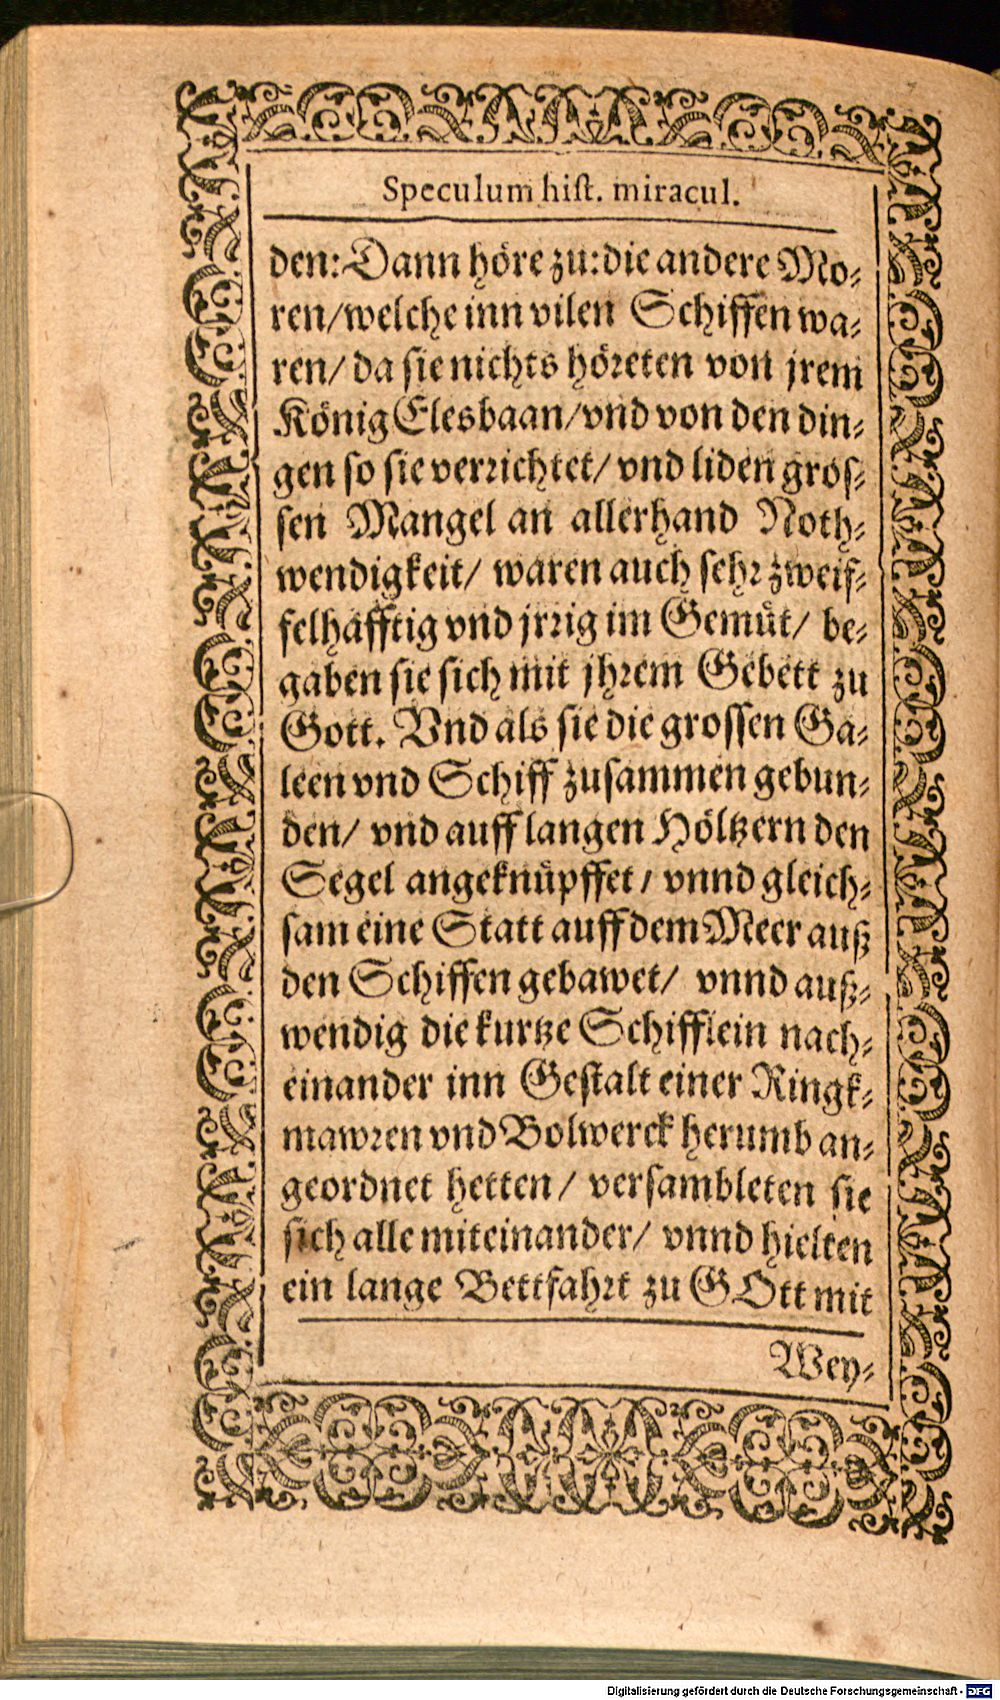 Speculum hist. miracul.
den: Dann höre zu: die andere Mo-
ren/ welche inn vilen Schiffen wa-
ren/ da sie nichts höreten von jrem
König Elesbaan/ vnd von den din-
gen so sie verrichtet/ vnd liden gros-
sen Mangel an allerhand Noth-
wendigkeit/ waren auch sehr zweif-
felhäfftig vnd jrrig im Gemüt/ be-
gaben sie sich mit jhrem Gebett zu
Gott. Vnd als sie die grossen Ga-
leen vnd Schiff zusammen gebun-
den/ vnd auff langen Höltzern den
Segel angeknüpffet/ vnnd gleich-
sam eine Statt auff dem Meer auß
den Schiffen gebawet/ vnnd auß-
wendig die kurtze Schifflein nach-
einander inn Gestalt einer Ringk-
mawren vnd Bolwerck herumb an-
geordnet hetten/ versambleten sie
sich alle miteinander/ vnnd hielten
ein lange Bettfahrt zu GOtt mit
Wey-
Digitalisierung gefördert durch die Deutsche Forschungsgemeinschaft - DFG